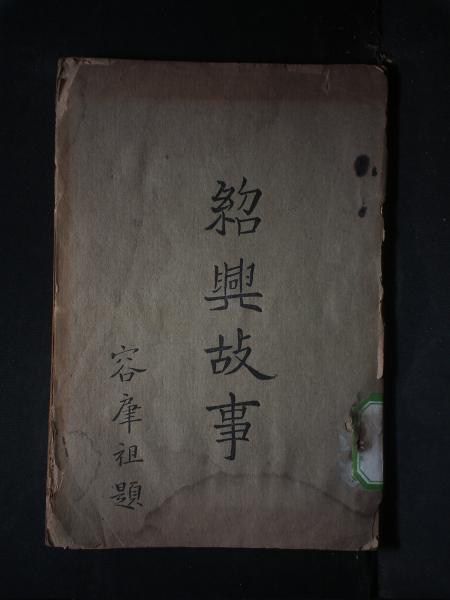 紹興故事
容肇祖題